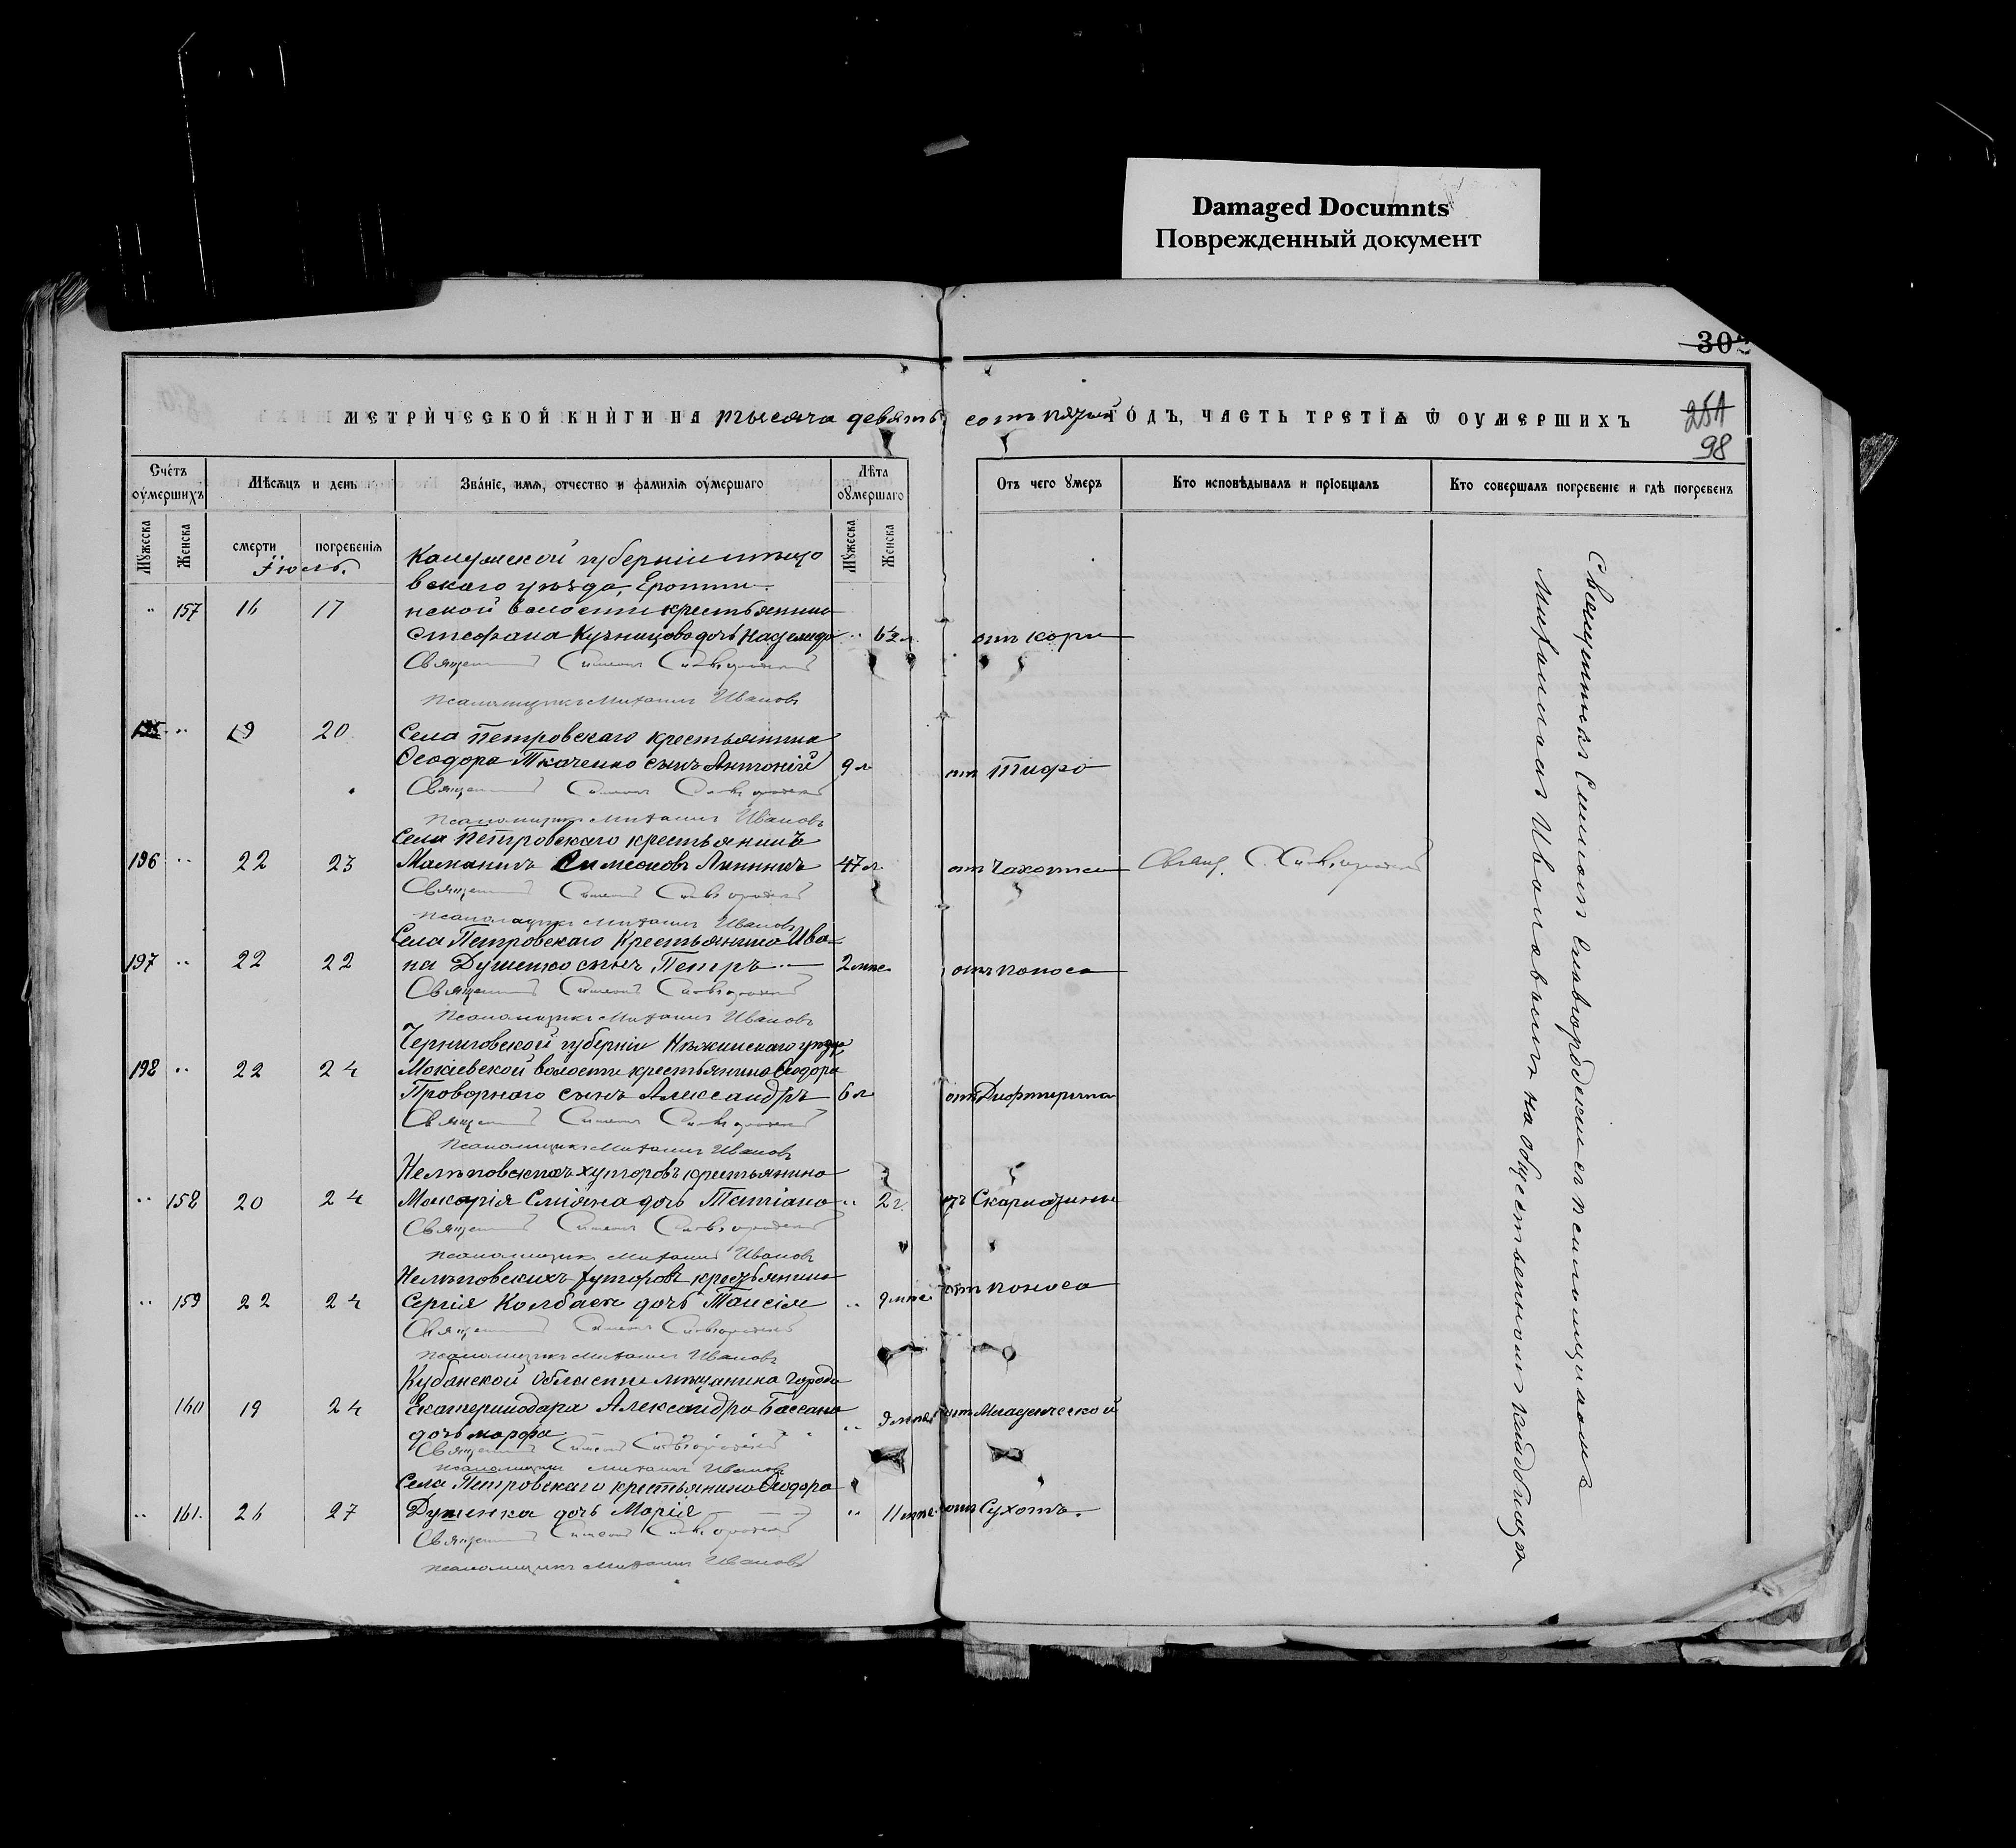 Damaged Documnts
Поврежденный документ
302
МЕТРИЧЕСКОЙ КНИГИ НА тысяча девять сотъ пятый ГОДЪ, ЧАСТЬ ТРЕТІЯ Ѿ ОУМЕРШИХЪ
251
98
Счетъ оумершихъ
Мѣсяцъ и день
Званіе, имя, отчество и фамилія оумершаго
Лѣта оумершаго
Отъ чего умеръ
Кто исповѣдывалъ и пріобщалъ
Кто совершалъ погребеніе и гдѣ погребенъ
Мужеска
Женска
смерти
погребенія
Мужеска
Женска
Іюль.
Калужской губерніи
вскаго уѣзда,
157 16 17 нской волости крестьянина
Стефана Кузнецова дочь Надежда 6½ л. отъ кори
Священникъ Симеонъ Славгородскій
псаломщикъ Михаилъ Ивановъ
195 19 20 Села Петровскаго крестьянина
Ѳеодора Ткаченко сынъ Антоній 9 л. отъ Тифа
Священникъ Симеонъ Славгородскій
псаломщикъ Михаилъ Ивановъ
Села Петровскаго крестьянинъ
196 22 23 Симеоновъ 47 л. отъ Чахотки Свящ. С. Славгородскій
Священникъ Симеонъ Славгородскій
псаломщикъ Михаилъ Ивановъ
Села Петровскаго Крестьянина Ива=
197 22 22 на Душенко сынъ Петръ 2 мѣс. отъ поноса
Священникъ Симеонъ Славгородскій
псаломщикъ Михаилъ Ивановъ
Черниговской губерніи Нѣжинскаго уѣзда
198 22 24 Мокіевской волости крестьянина Ѳеодора
Проворнаго сынъ Александръ 6 л. отъ Дифтерита
Священникъ Симеонъ Славгородскій
псаломщикъ Михаилъ Ивановъ
хуторовъ крестьянина
158 20 24 Макарія Сміяна дочь Татіана 2 г. отъ Скарлатины
Священникъ Симеонъ Славгородскій
псаломщикъ Михаилъ Ивановъ
хуторовъ крестьянина
159 22 24 Сергія дочь Таисія 9 мѣс. отъ поноса
Священникъ Симеонъ Славгородскій
псаломщикъ Михаилъ Ивановъ
Кубанской области мѣщанина города
160 19 24 Екатеринодара Александра дочь Марфа 9 мѣс. отъ Младенческой
Священникъ Симеонъ Славгородскій
псаломщикъ Михаилъ Ивановъ
Села Петровскаго крестьянина Ѳеодора
161. 26 27 Душенка дочь Марія 11 мѣс. отъ Сухотъ.
Священникъ Симеонъ Славгородскій
псаломщикъ Михаилъ Ивановъ
Священникъ Симеонъ Славгородскій съ псаломщикомъ
Михаиломъ Ивановымъ на общественномъ кладбищѣ